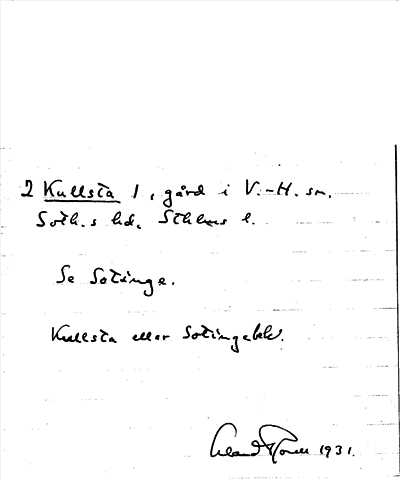 2 Kullsta 1, gård i V.-H. sn.
Soth.s hd, Sthlms l.
Se Sotinge.
Kullsta eller Sotingebk.
1931.